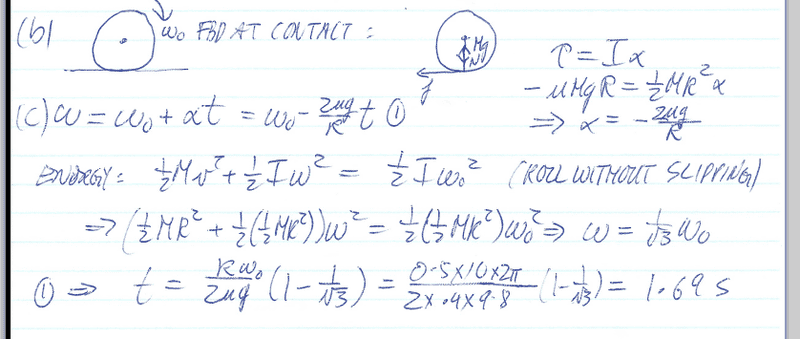 (b) ω₀ FBD AT CONTACT : Mg N f
τ = Iα
-μMgR = ½MR²α
⇒ α = -2μg/R
(c) ω = ω₀ + αt = ω₀ - 2μg/R t ①
ENERGY: ½Mv² + ½Iω² = ½Iω₀² (ROLL WITHOUT SLIPPING)
⇒ (½MR² + ½(½MR²))ω² = ½(½MR²)ω₀² ⇒ ω = 1/√3 ω₀
① ⇒ t = Rω₀/2μg (1 - 1/√3) = 0.5×10×2π/2×.4×9.8 (1 - 1/√3) = 1.69 s